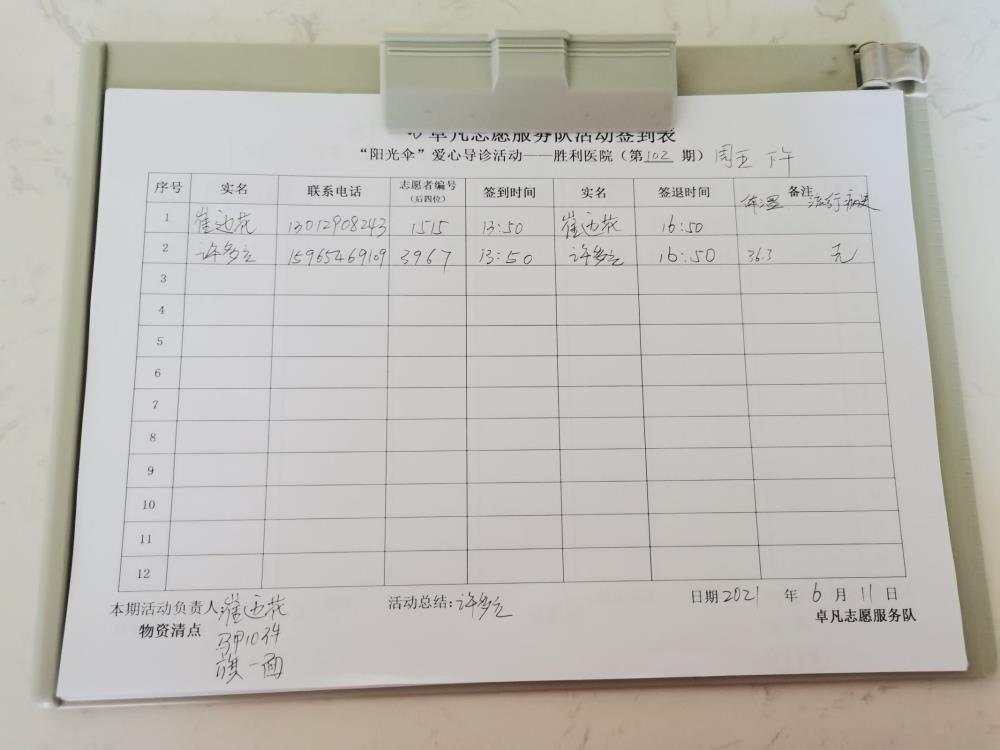 卓凡志愿服务队活动签到表
“阳光伞”爱心导诊活动——胜利医院（第102期）周五 下午
序号 实名 联系电话 志愿者编号（后四位） 签到时间 实名 签退时间 备注 体温 流行病史
1 崔迎花 13012908243 1515 13:50 崔迎花 16:50
2 许多立 15965469109 3967 13:50 许多立 16:50 36.3 无
3
4
5
6
7
8
9
10
11
12
本期活动负责人 崔迎花 活动总结: 许多立 日期 2021 年 6 月 11 日
物资清点 卓凡志愿服务队
马甲10件
旗一面